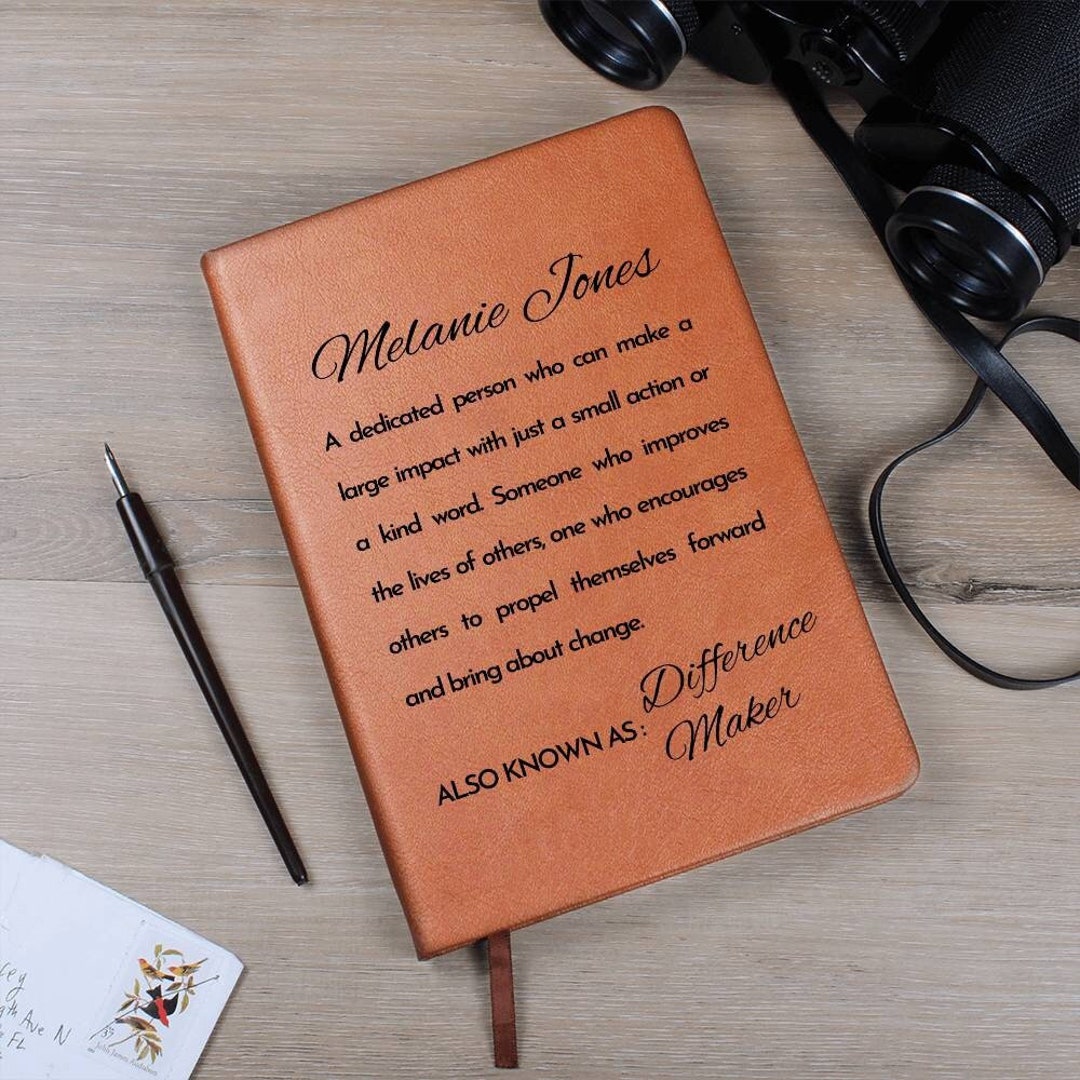 Melanie Jones
A dedicated person who can make a
large impact with just a small action or
a kind word. Someone who improves
the lives of others, one who encourages
others to propel themselves forward
and bring about change.
ALSO KNOWN AS: Difference
Maker
Ave N
FL
John James Audubon